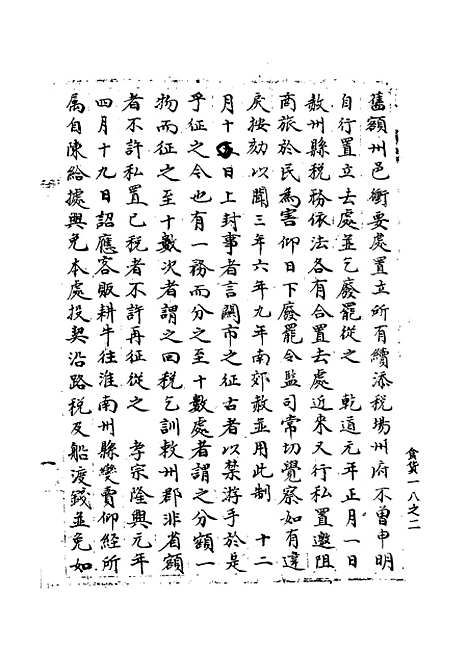 舊額州邑衝要處置立所有續添稅場州府不曾申明
自行置立去處並乞廢罷從之　乾道元年正月一日
赦州縣稅務依法各有合置去處近來又行私置邀阻
商旅於民為害仰日下廢罷令監司常切覺察如有違
戾按劾以聞三年六年九年南郊赦並用此制　十二
月十五日上封事者言關市之征古者以禁游手於是
乎征之今也有一務而分之至十數處者謂之分額一
物而征之至十數次者謂之回稅乞訓敕州郡非省額
者不許私置已稅者不許再征從之　孝宗隆興元年
四月十九日詔應客販耕牛往淮南州縣變賣仰經所
屬自陳給據與免本處投契沿路稅及船渡錢並免如
食貨一八之二
一